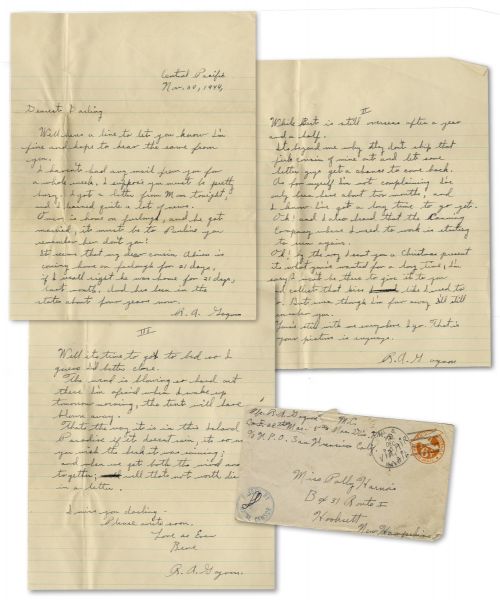 Central Pacific
Nov. 1944
Dearest Darling
Well here a line to let you know I'm
fine and hope to hear the same from
you.
I haven't had any mail from you for
a whole week, I suppose you must be pretty
busy. I got a letter from Mom tonight,
and I heard quite a lot of news.
is home on furlough, and he got
married, it must be to Pauline you
remember her don't you?
It seems that my dear cousin
coming home on furlough for 21 days,
if I recall right he was home for 21 days,
last month. And has been in the
states about four years now.
R. A. Gagnon
II
While Bert is still overseas after a year
and a half.
Its beyond me why they don't ship that
cousin of mine out and let some
guys get a chance to come back.
As for myself I'm not complaining I've
only been here about two months, and
I know I've got a long time to go yet.
Oh! and I also heard that the
Company where I used to work is
to run again.
Oh! by the way I sent you a Christmas present
its what you've wanted for a long time, I'm
sorry I won't be there to give it to you
and collect that kiss like I used to
do. But even though I'm far away I'll still
you.
You're still with me everywhere I go. That is
your picture is anyway.
R. A. Gagnon
III
Well its time to go to bed so I
guess I'd better close.
The wind is blowing so hard out
there I'm afraid when I wake up
tomorrow morning, the tent will have
blown away.
Thats the way it is in this Island
Paradise if it doesn't rain, its so
you wish the heck it was raining;
and when we get both the wind and
together; well that's not worth
in a letter.
I miss you darling
Please write soon.
Love as Ever
Rene
R. A. Gagnon
Pfc. R. A. Gagnon M.C.
28th
F.P.O. San Francisco Calif.
Miss Polly Harnois
Box 31 Route 1
Hooksett
New Hampshire